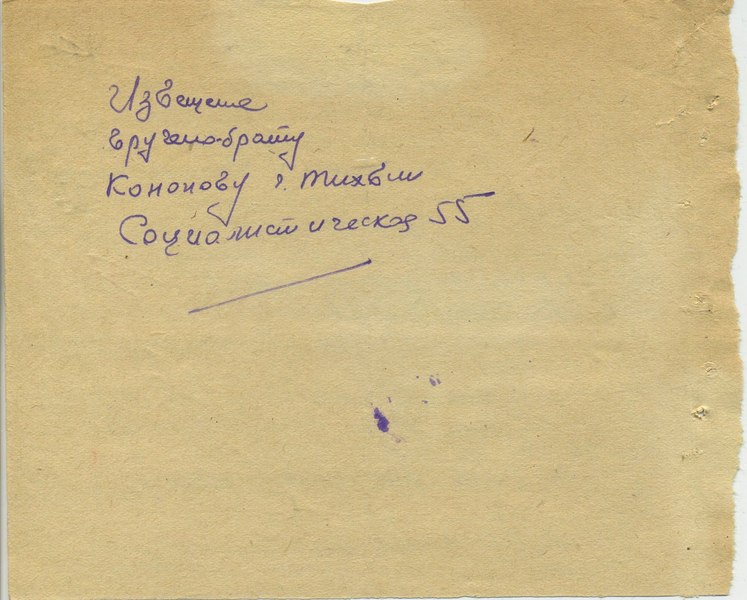 Извещение
вручено-брату
Кононову г. Тихвин
Социалистическая 55